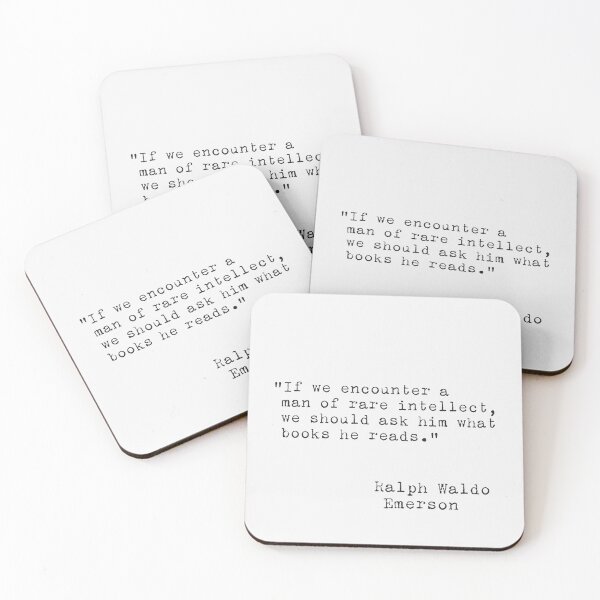 "If we encounter a
man of rare intellec
we should ask him wh
"If we encounter a
man of rare intellect,
we should ask him what
books he reads."
"If we encounter a
man of rare intellect,
we should ask him what
books he reads."
Ralp
Em
"If we encounter a
man of rare intellect,
we should ask him what
books he reads."
Ralph Waldo
Emerson